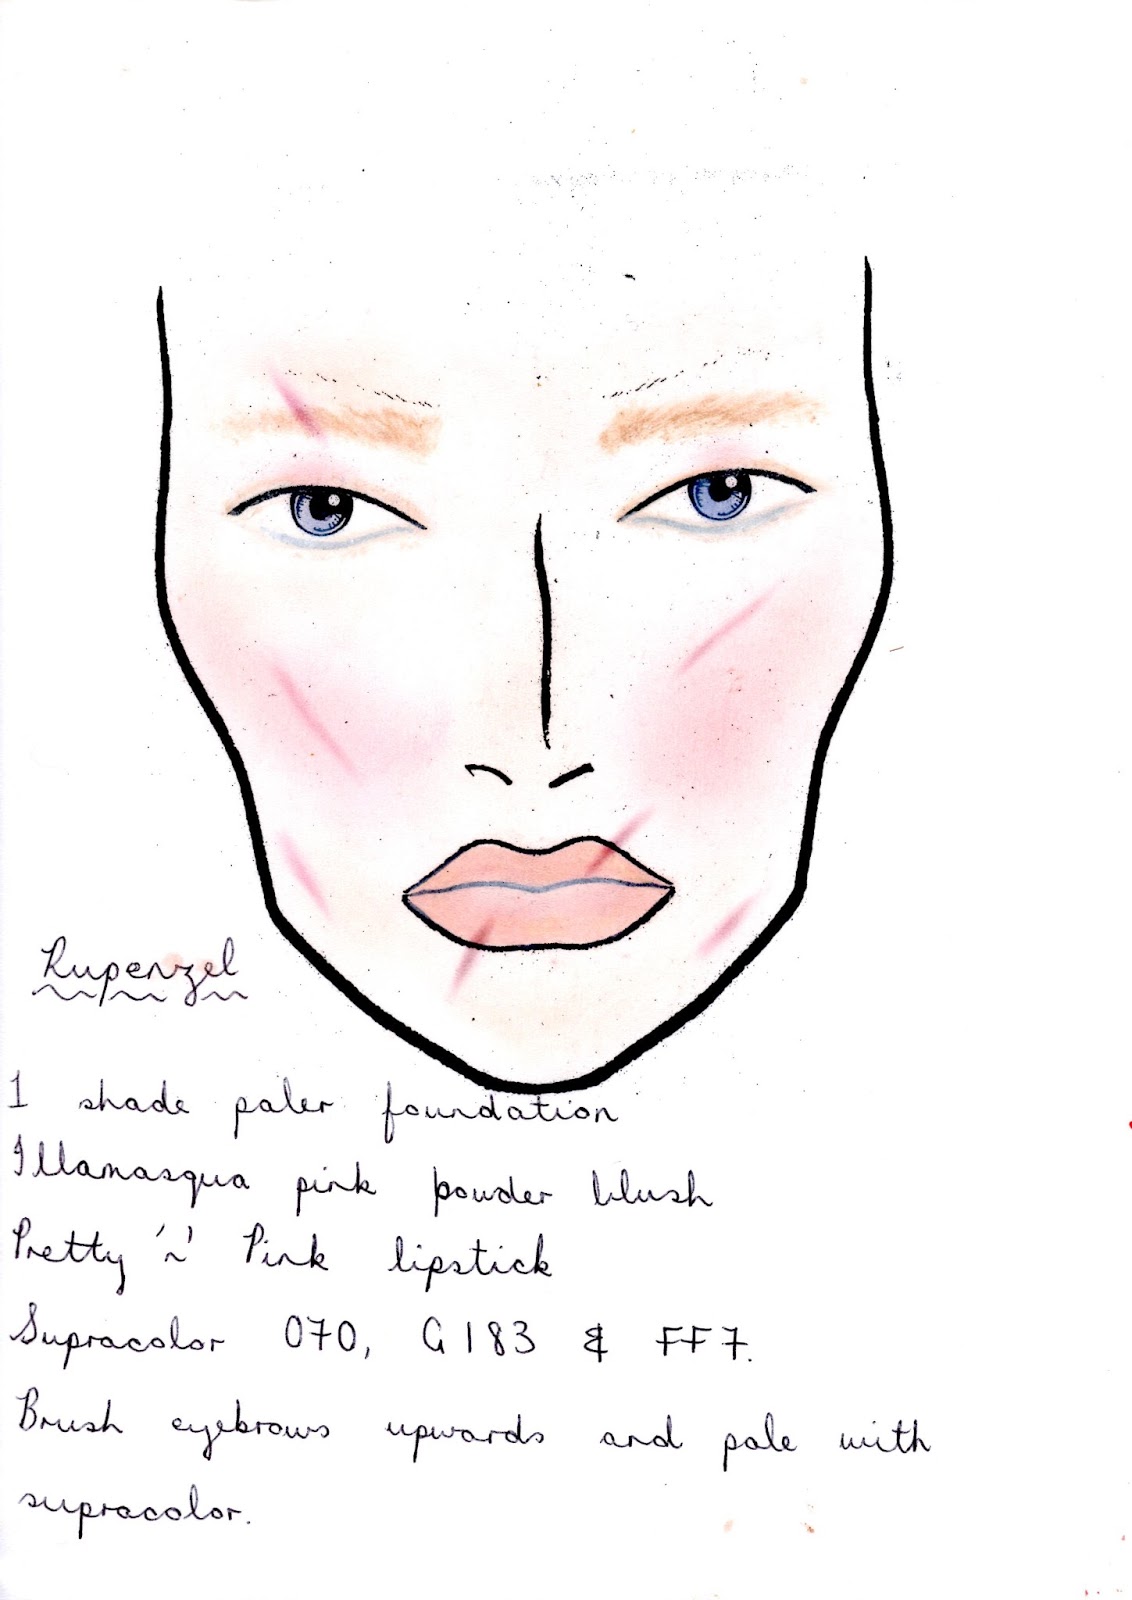 Rupenzel
1 shade paler foundation
Illamasqua pink powder blush
Pretty 'n' Pink lipstick
Supracolor 070, G183 & FF7.
Brush eyebrows upwards and pale with
supracolor.